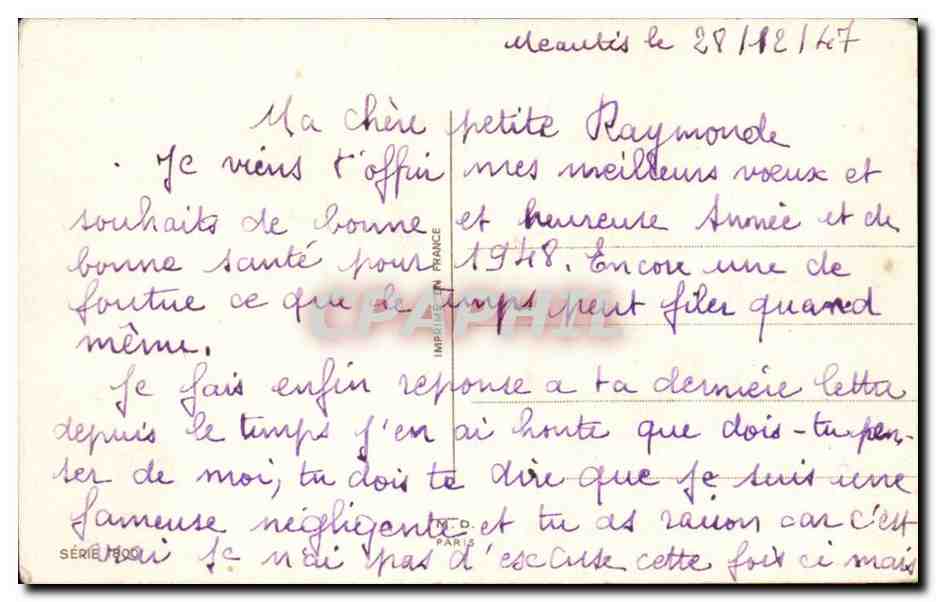 Meautis le 28/12/47
Ma chère petite Raymonde
Je viens t'offrir mes meilleurs vœux et
souhaits de bonne et heureuse Année et de
bonne santé pour 1948. Encore une de
foutue ce que le temps peut filer quand
même.
Je fais enfin reponse a ta dernière lettre
depuis le temps j'en ai honte que dois-tu pen-
ser de moi, tu dois te dire que je suis une
fameuse négligente et tu as raison car c'est
vrai je n'ai pas d'excuse cette fois ci mais
IMPRIMÉ EN FRANCE
M.D.
PARIS
SÉRIE 1800
CPAPHIL